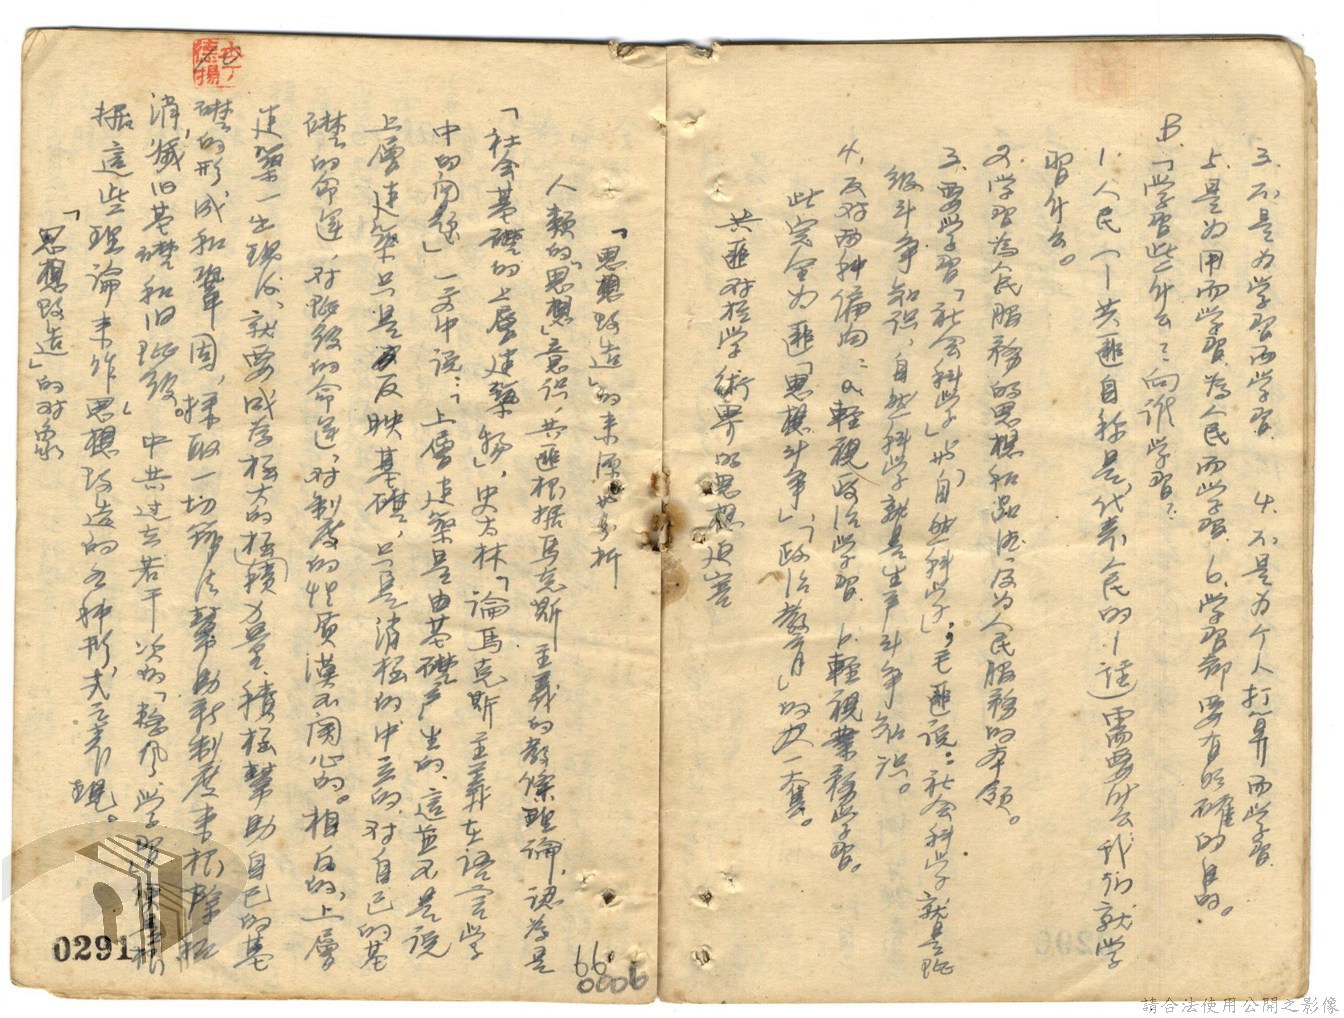 3. 不是为学習而学習. 4. 不是为个人打算而学習.
5. 是为用而学習, 为人民而学習. 6. 学習都要有明確的目的。
B.「学習些什么? 向谁学習?
1. 人民(一共匪自称是代表人民的一谨)需要什么我们就学
習什么。
2. 学習為人民服務的思想和品德, 及为人民服務的本領。
3. 要学習「社会科学」与「自然科学」, 毛匪说: 社会科学就是階
級斗争知识, 自然科学就是生产斗争知识。
4. 反对两种偏向: a. 輕視政治学習. b. 輕視業務学習。
此完全为匪「思想斗争」、「政治教育」的又一套。
共匪对於学術界的思想迫害
「思想改造」的来源与分析
人類的「思想」意识, 共匪根据馬克斯主義的教條理論, 認為是
「社会基礎的上層建築物」, 史大林「論馬克斯主義在语言学
中的问题」一文中说:「上層建築是由基礎产生的, 這並不是说
上層建築只是反映基礎, 只是消極的中立的, 对自己的基
礎的命運, 对階級的命運, 对制度的性質漠不関心的。相反的, 上層
建築一出現後, 就要成为極大的積極力量, 積極幫助自己的基
礎的形成和鞏固, 採取一切辦法幫助新制度来根除和
消滅旧基礎和旧階級。」中共过去若干次的「整风」学習, 便是根
据這些理論来作思想改造的各种形式之表現。
「思想改造」的对象
0291
66.
0006
請合法使用公開之影像